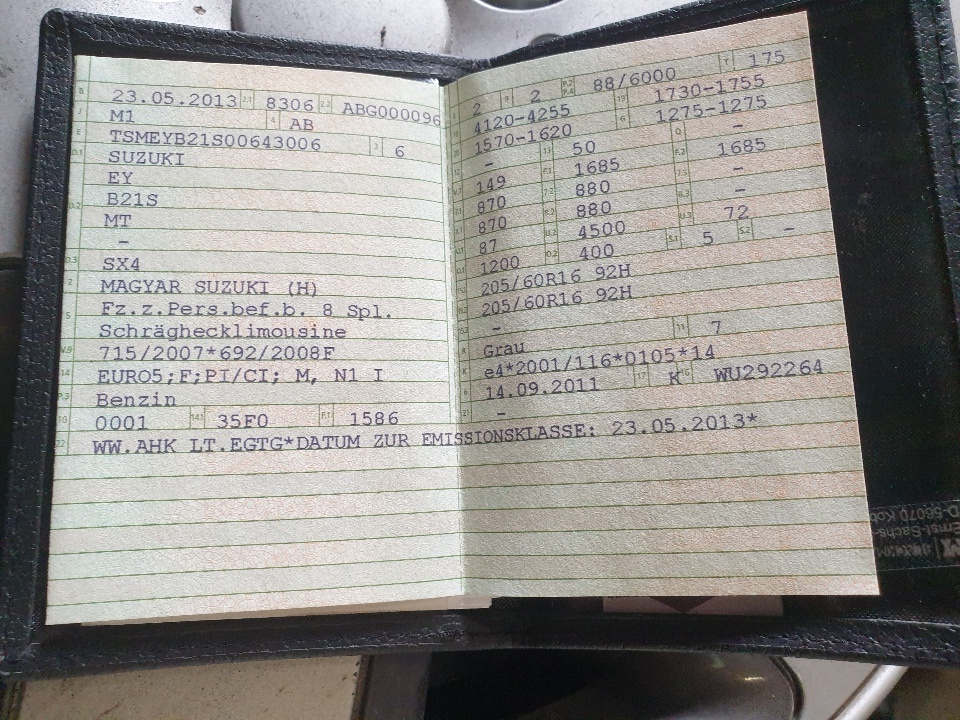 B 23.05.2013 2.1 8306 2.2 ABG000096
J M1 4 AB
E TSMEYB21S00643006 3 6
D.1 SUZUKI
EY
D.2 B21S
MT
-
D.3 SX4
2 MAGYAR SUZUKI (H)
5 Fz.z.Pers.bef.b. 8 Spl.
Schräghecklimousine
V.9 715/2007*692/2008F
14 EURO5;F;PI/CI; M, N1 I
P.3 Benzin
10 0001 14.1 35F0 P.1 1586
22 WW.AHK LT.EGTG*DATUM ZUR EMISSIONSKLASSE: 23.05.2013*
2 9 2 P.2 P.4 88/6000 T 175
4120-4255 19 1730-1755
1570-1620 G 1275-1275
- 13 50 Q -
149 F.1 1685 F.2 1685
870 7.2 880 7.3 -
870 8.2 880 8.3 -
87 U.2 4500 U.3 72
1200 O.2 400 S.1 5 S.2 -
205/60R16 92H
205/60R16 92H
-
Grau 11 7
e4*2001/116*0105*14
14.09.2011 17 K 16 WU292264
-
Ernst-Sachs-
D-56070 Kob